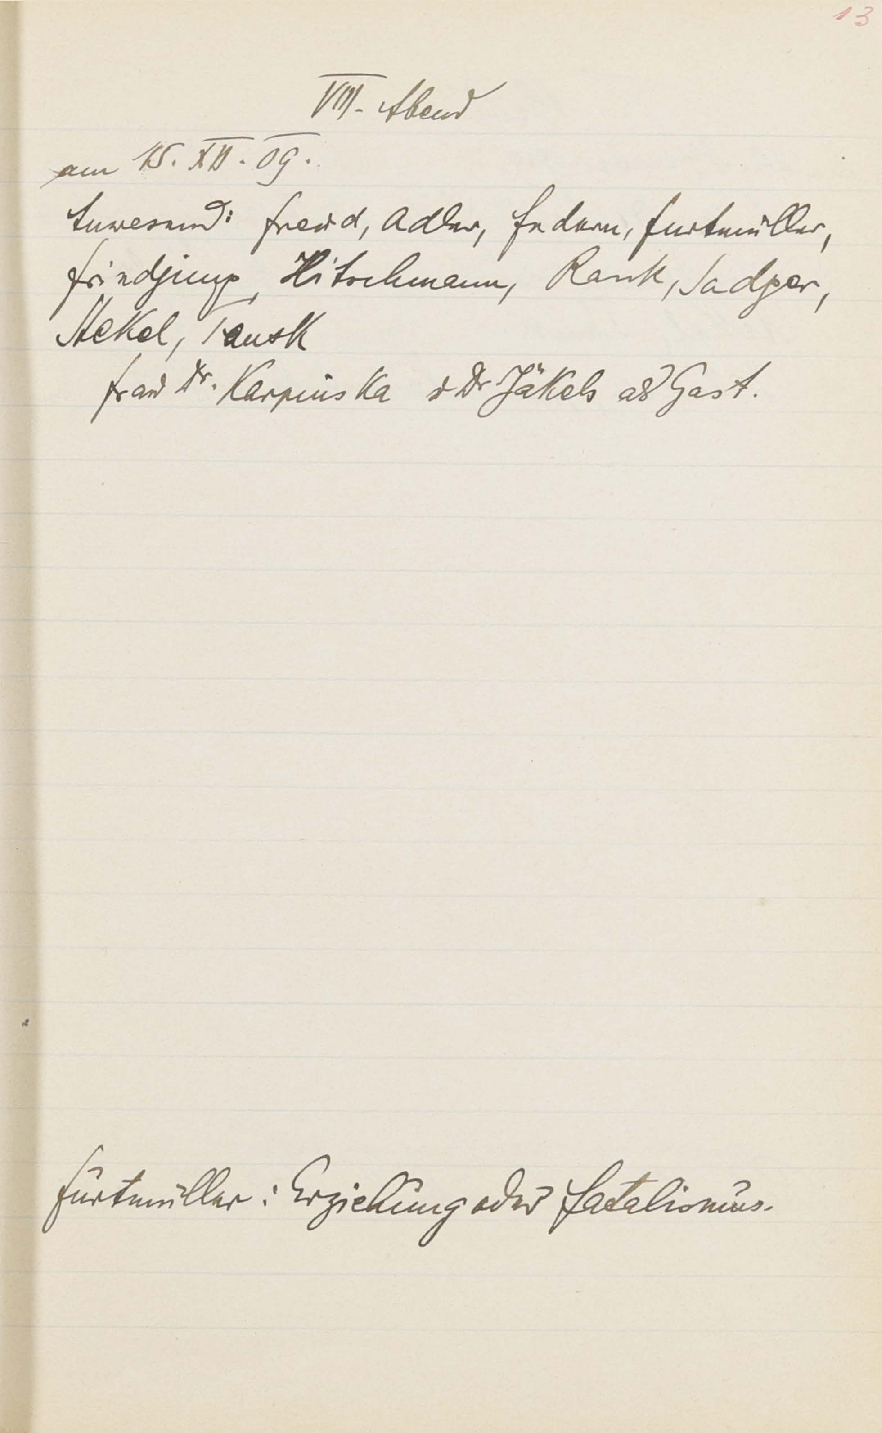 13
VIII. Abend
am 15. XII. 09.
Anwesend: Freud, Adler, Federn, Furtmüller,
Friedjung, Hitschmann, Rank, Sadger,
Stekel, Tausk
Frau Dr. Karpinska u Dr Jäkels als Gast.
Furtmüller: Erziehung oder Fatalismus.